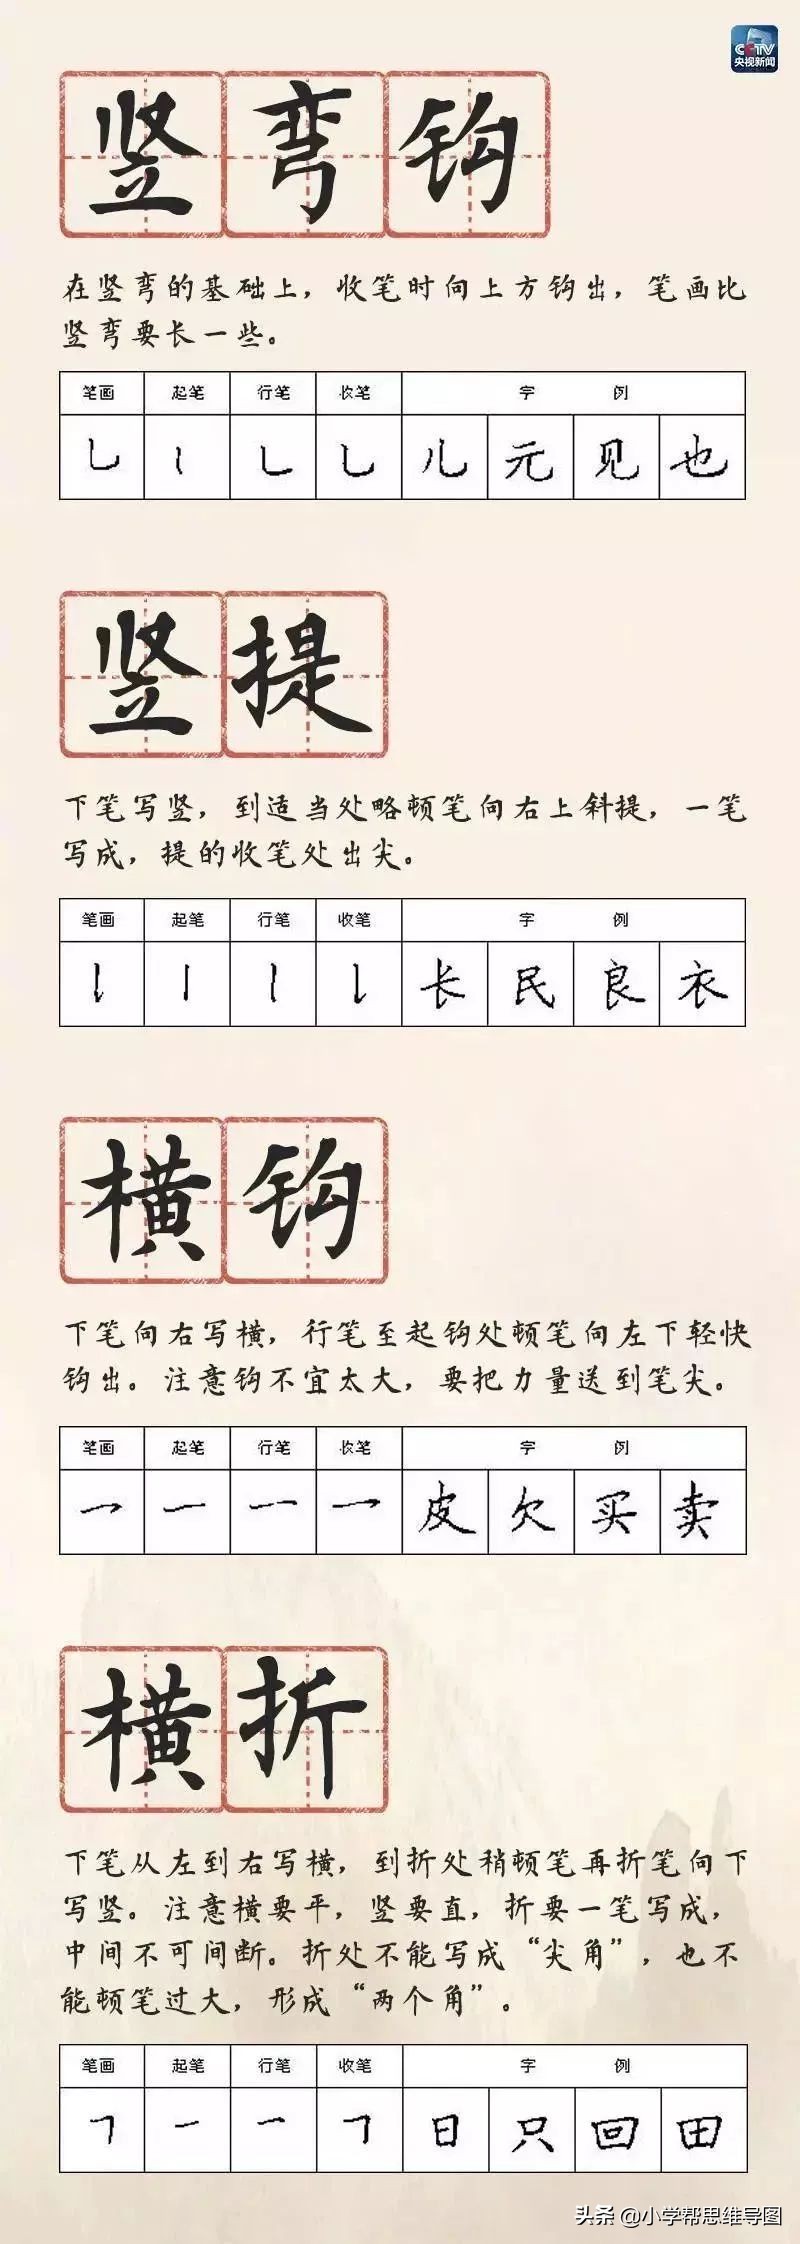 CCTV
央视新闻
竖弯钩
在竖弯的基础上，收笔时向上方钩出，笔画比
竖弯要长一些。
笔画 起笔 行笔 收笔 字例
乚 丨 ㇄ 乚 儿 元 见 也
竖提
下笔写竖，到适当处略顿笔向右上斜提，一笔
写成，提的收笔处出尖。
笔画 起笔 行笔 收笔 字例
𠄌 丨 丨 𠄌 长 民 良 衣
横钩
下笔向右写横，行笔至起钩处顿笔向左下轻快
钩出。注意钩不宜太大，要把力量送到笔尖。
笔画 起笔 行笔 收笔 字例
乛 一 一 乛 皮 欠 买 卖
横折
下笔从左到右写横，到折处稍顿笔再折笔向下
写竖。注意横要平，竖要直，折要一笔写成，
中间不可间断。折处不能写成“尖角”，也不
能顿笔过大，形成“两个角”。
笔画 起笔 行笔 收笔 字例
𠃍 一 一 𠃍 日 只 回 田
头条 @小学帮思维导图